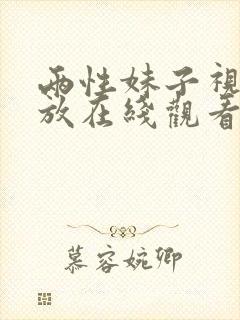 兩性妹子視
放在綫觀看
慕容婉卿